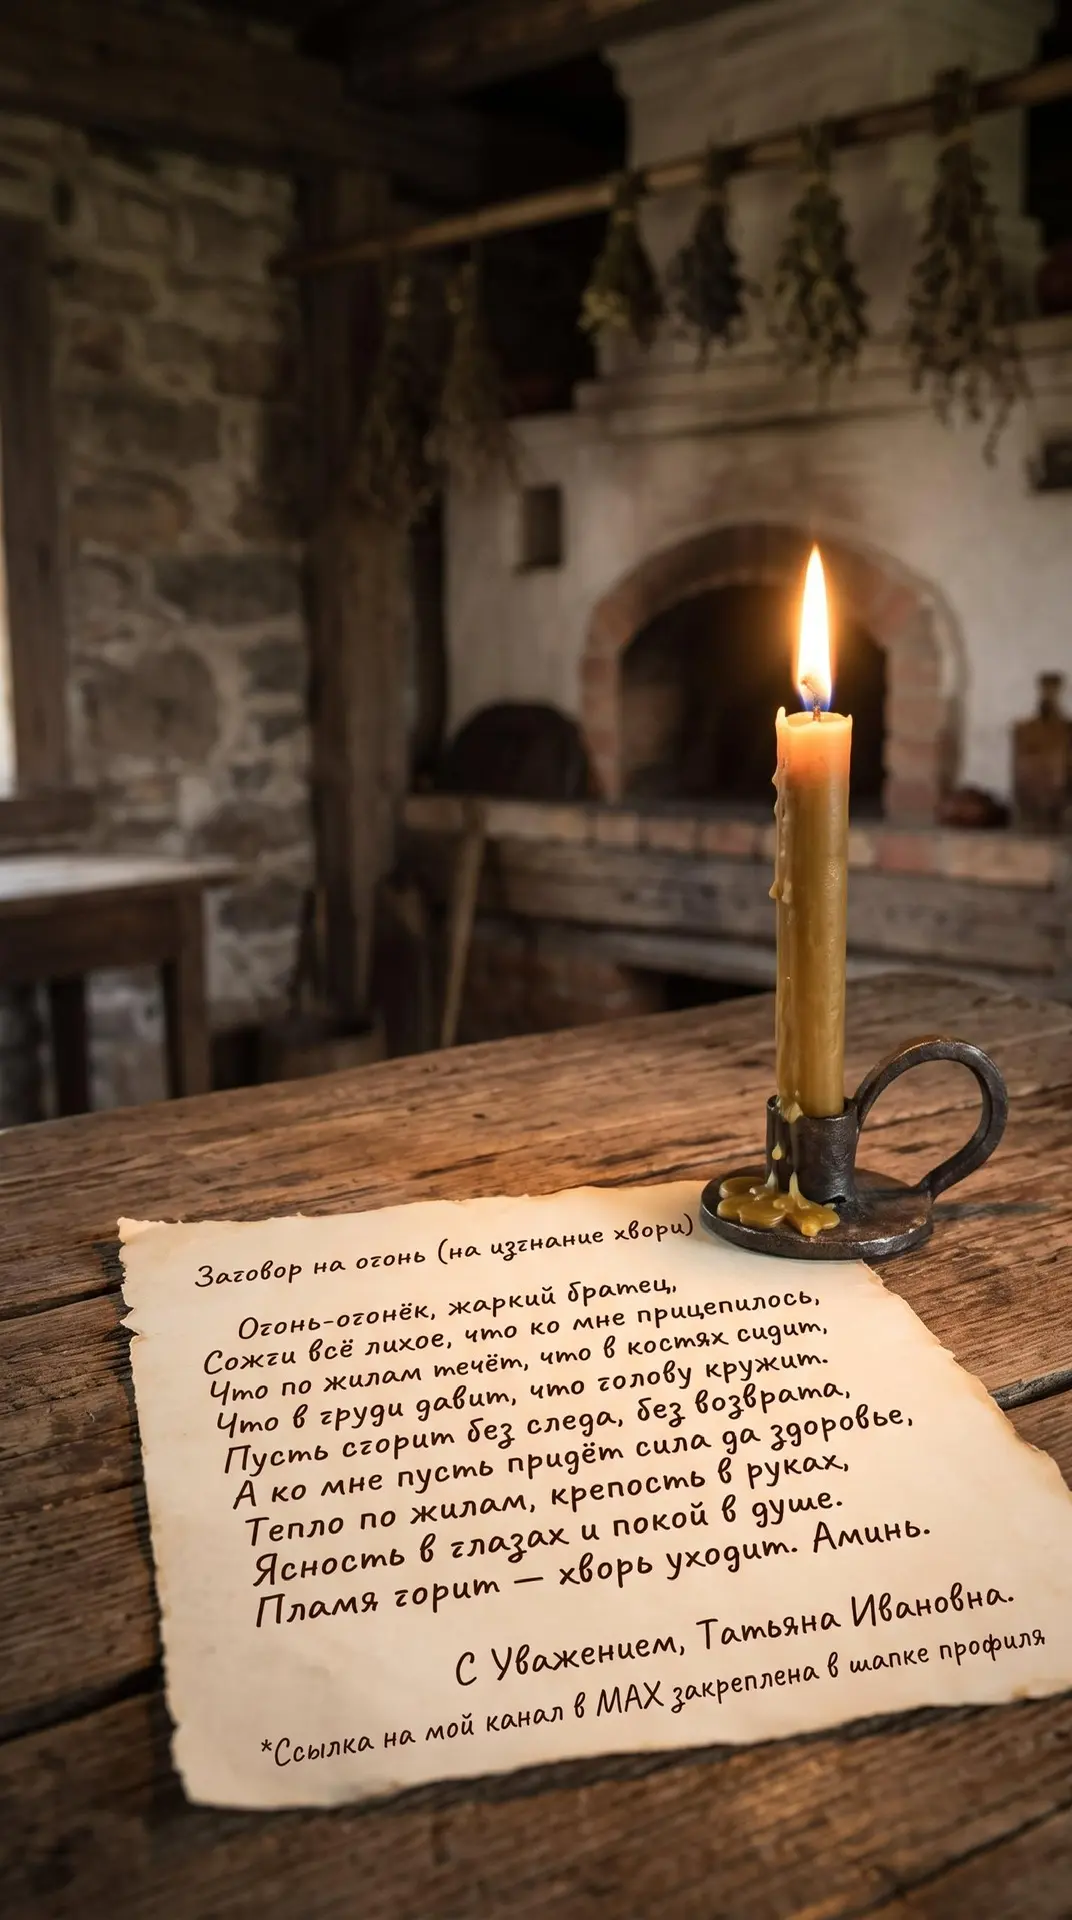 Заговор на огонь (на изгнание хвори)
Огонь-огонёк, жаркий братец,
Сожги всё лихое, что ко мне прицепилось,
Что по жилам течёт, что в костях сидит,
Что в груди давит, что голову кружит.
Пусть сгорит без следа, без возврата,
А ко мне пусть придёт сила да здоровье,
Тепло по жилам, крепость в руках,
Ясность в глазах и покой в душе.
Пламя горит — хворь уходит. Аминь.
С Уважением, Татьяна Ивановна.
*Ссылка на мой канал в МАХ закреплена в шапке профиля